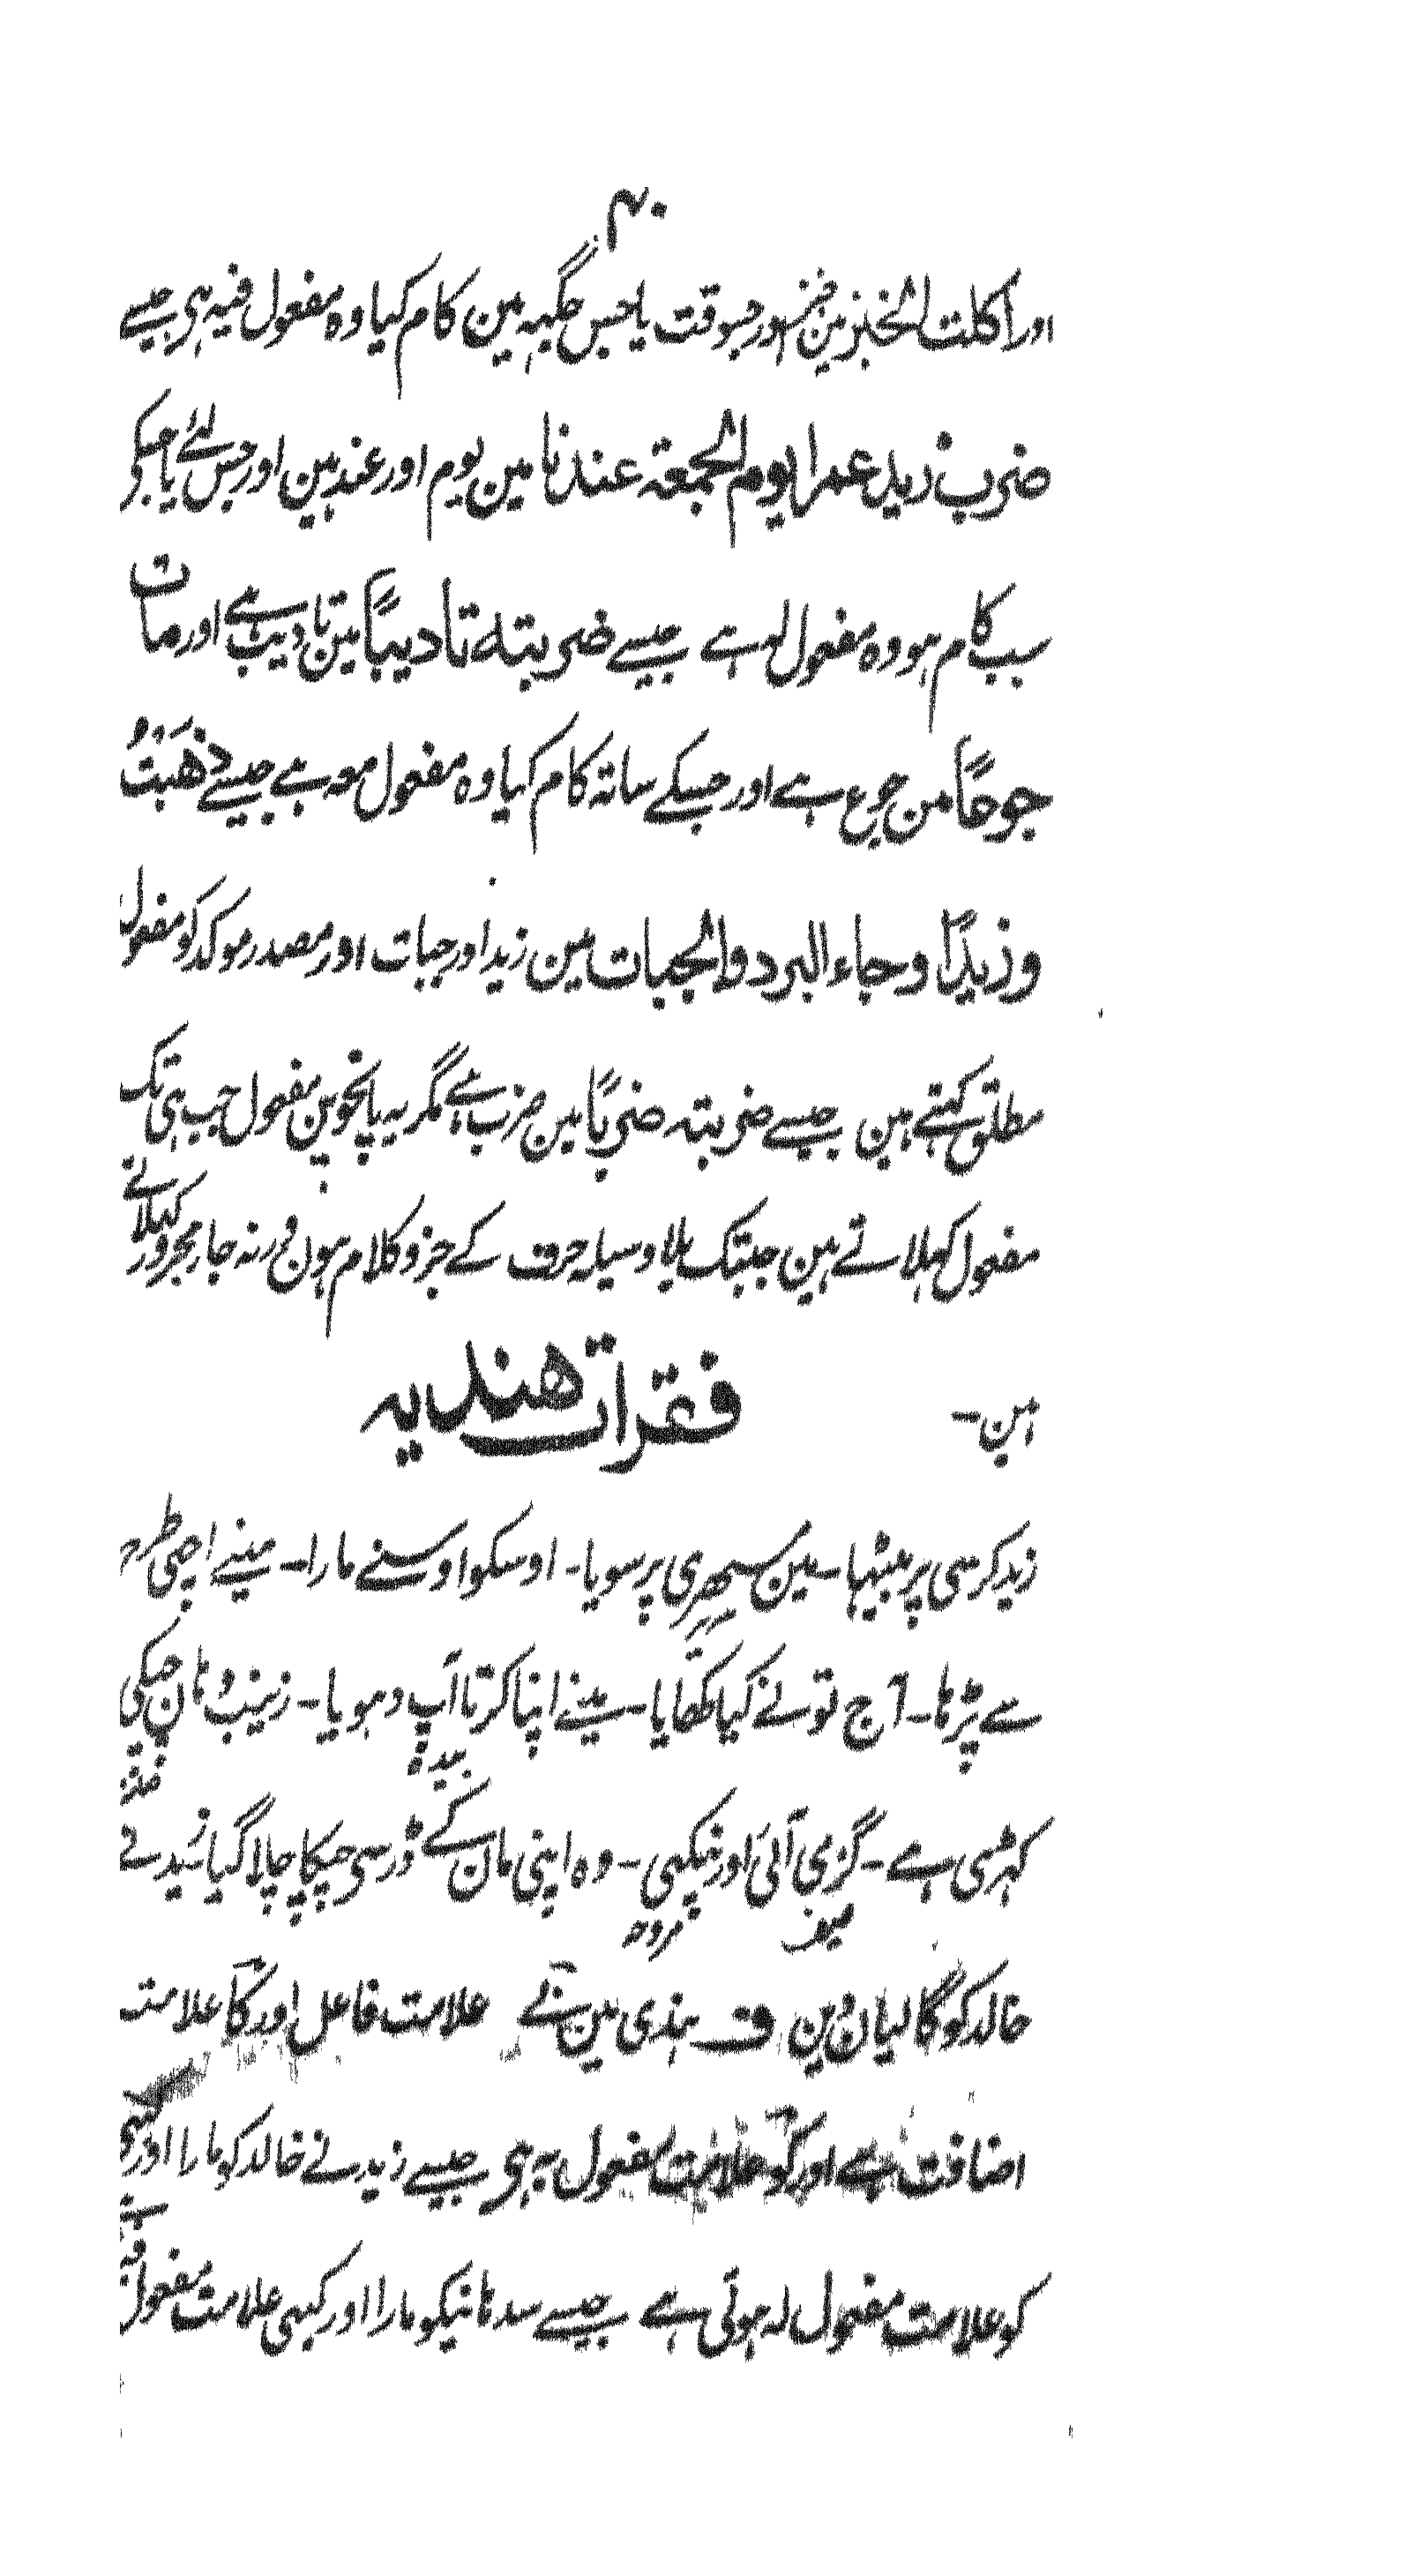 ۴۰
اور اکلت الخبز مین خبز اور جسوقت یا جس جگہہ مین کام کیا وہ مفعول فیہ ہی جیسے
ضرب زید عمرا یوم الجمعۃ عندنا مین یوم اور عند ہین اور جس لئے یا جسکی
سبب کام ہو وہ مفعول لہ ہے جیسے ضربتہ تادیباً مین تادیب ہے اور مات
جوعًا من جوع ہے اور جسکے ساتہ کام کیا وہ مفعول معہ ہے جیسے ذھَبتُ
وزیدًا وجاء البرد والجبات مین زید اور جبات اور مصدر موکد کو مفعول
مطلق کہتے ہین جیسے ضربتہ ضربًا مین ضرب ہے مگر یہ پانچوین مفعول جب ہی تک
مفعول کہلاتے ہین جبتک بلا وسیلہ حرف کے جزو کلام ہون ورنہ جار مجرور کہلاتے
ہین۔
فقرات ھندیہ
زید کرسی پر بیٹہا۔ مین مسہری پر سویا۔ اوسکو اوسنے مارا۔ مینے اچہی طرح
سے پڑہا۔ آج تونے کیا کھایا۔ مینے اپنا کرتا آپ دہویا۔ زینب وہان چپکی
کہڑی ہے۔ گرمی آئی اور پنکہی۔ وہ اپنی مان کے ڈر سی چپکا چلا گیا زید نے
صیف مروحہ
خالد کو گالیان دین ف ہندی مین نے علامت فاعل اور کا علامت
اضافت ہے اور کو علامت مفعول بہ ہی جیسے زید نے خالد کو مارا اور کبہی
کو علامت مفعول لہ ہوتی ہے جیسے سدہانیکو مارا اور کبہی علامت مفعول فیہ